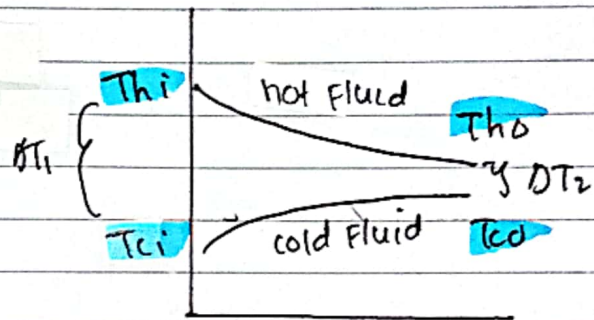 Thi
hot Fluid
Tho
DT₁
DT₂
Tci
cold Fluid
Tco